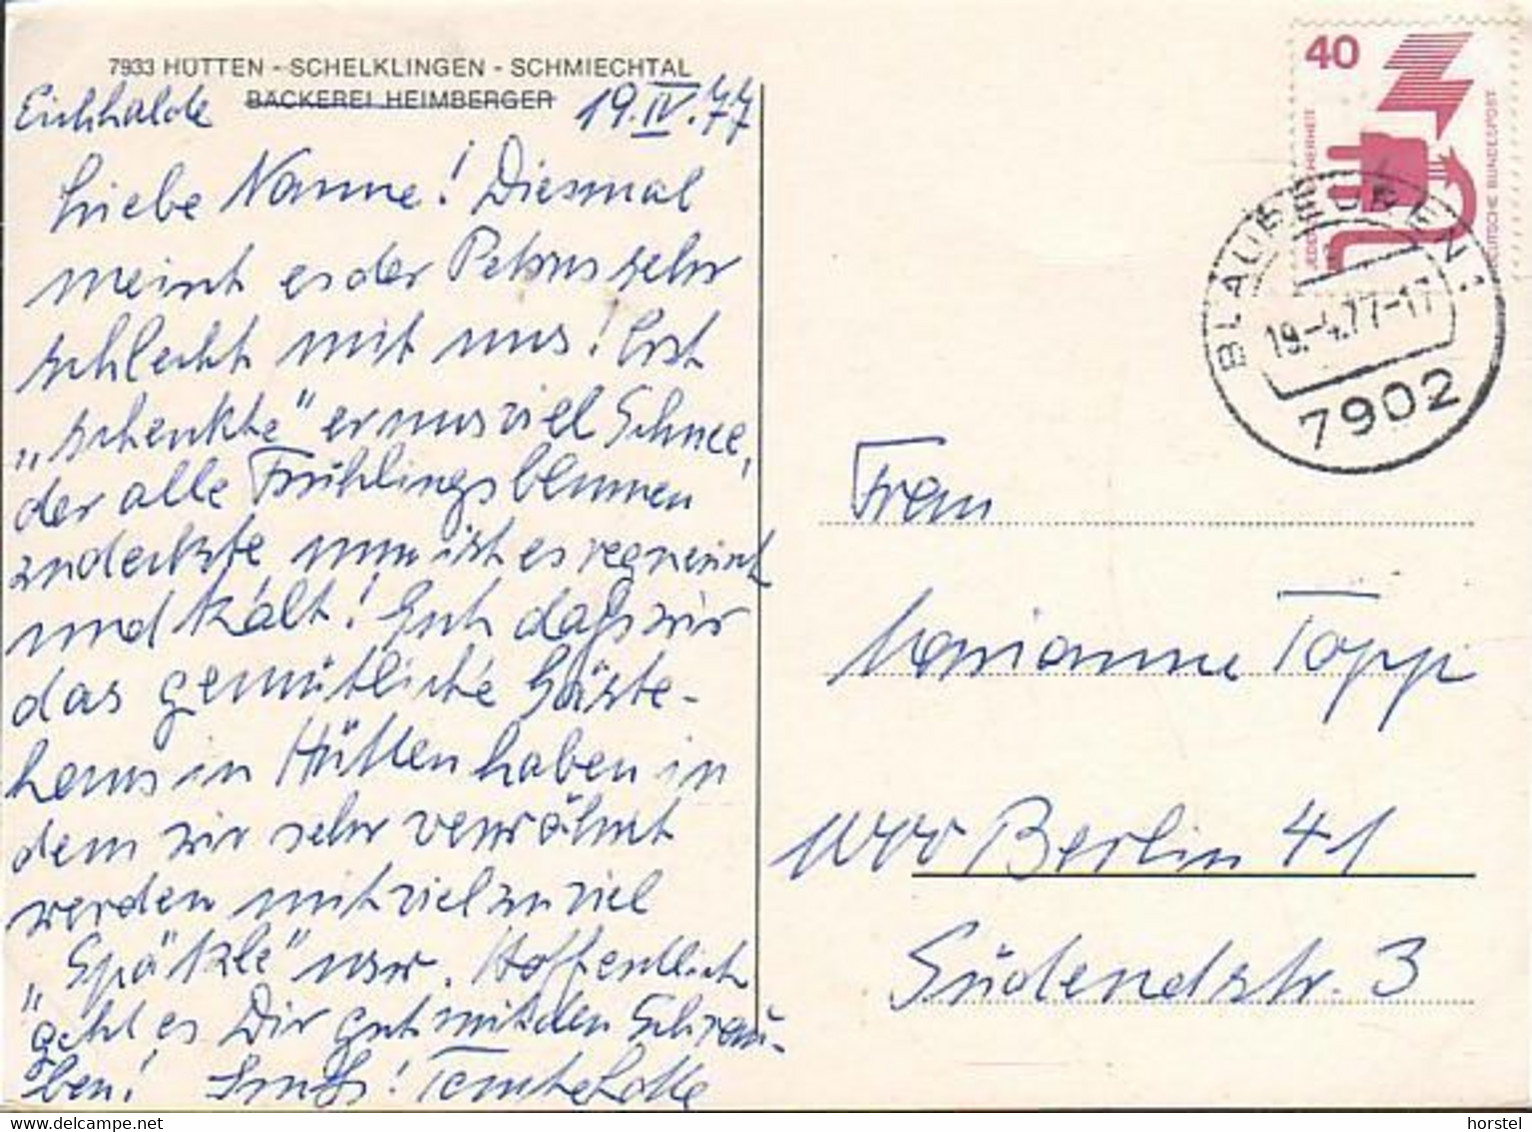 7933 HÜTTEN - SCHELKLINGEN - SCHMIECHTAL
BÄCKEREI HEIMBERGER
Eichhalde 19.IV.77
Liebe Nanne! Diesmal
meint es der Petrus sehr
schlecht mit uns! Erst
„schenkte" er uns viel Schnee,
der alle Frühlingsblumen
zudeckte nun ist es regnerisch
und kalt! Gut daß wir
das gemütliche Gäste-
haus in Hütten haben in
dem wir sehr verwöhnt
werden mit viel zu viel
„Spätzle" usw. Hoffentlich
geht es Dir gut mit den Schrau-
ben! Gruß! Tante Lotte
40
JEDERZEIT SICHERHEIT
DEUTSCHE BUNDESPOST
BLAUBEUREN 1
19.-4.77-17
7902
Frau
Marianne Topp
1000 Berlin 41
Südendstr. 3
© horstel